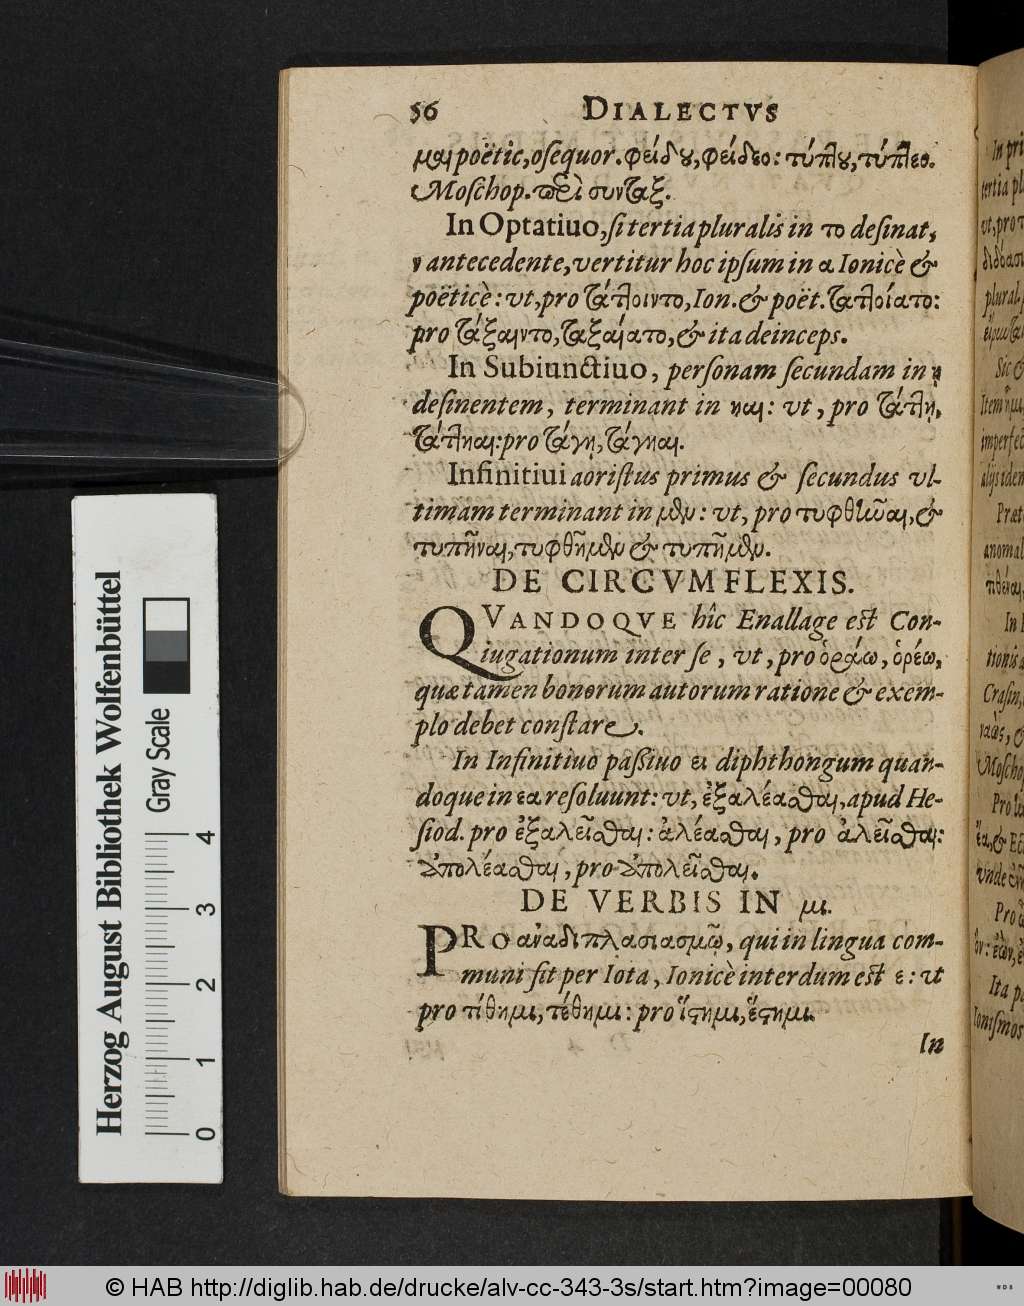 56 DIALECTVS
μαι poëtic, oſequor. φείδου, φείδεο: τύπτου, τύπτεο.
Moſchop. περὶ συνταξ.
In Optatiuo, ſi tertia pluralis in το deſinat,
ν antecedente, vertitur hoc ipſum in α Ionicè &
poëticè: vt, pro τάττοιντο, Ion. & poët. ταττοίατο:
pro τάξαιντο, ταξαίατο, & ita deinceps.
In Subiunctiuo, perſonam ſecundam in ῃ
deſinentem, terminant in ηαι: vt, pro τάττῃ,
τάττηαι: pro τάγῃ, τάγηαι.
Infinitiui aoriſtus primus & ſecundus vl-
timam terminant in μεν: vt, pro τυφθῆναι, &
τυπῆναι, τυφθῆμεν & τυπῆμεν.
DE CIRCVMFLEXIS.
QVANDOQVE hîc Enallage eſt Con-
iugationum inter ſe, vt, pro ὁράω, ὁρέω,
quæ tamen bonorum autorum ratione & exem-
plo debet conſtare.
In Infinitiuo paſſiuo ει diphthongum quan-
doque in εα reſoluunt: vt, ἐξαλέασθαι, apud He-
ſiod. pro ἐξαλεῖσθαι: ἀλέασθαι, pro ἀλεῖσθαι:
ἀπολέασθαι, pro ἀπολεῖσθαι.
DE VERBIS IN μι.
PRO ἀναδιπλασιασμῷ, qui in lingua com-
muni fit per Iota, Ionicè interdum eſt ε: vt
pro τίθημι, τέθημι: pro ἵστημι, ἕστημι.
In
In pri
tertia pl
vt, pro τ
διδόασι
plural.
Sic &
Item ἦμι
imperfec
alijs idem
Præt
anomal
In I
tionis a
Craſin,
Moſchop
vnde
Ita pe
Ioniſmos
Herzog August Bibliothek Wolfenbüttel
Gray Scale
0 1 2 3 4
© HAB http://diglib.hab.de/drucke/alv-cc-343-3s/start.htm?image=00080